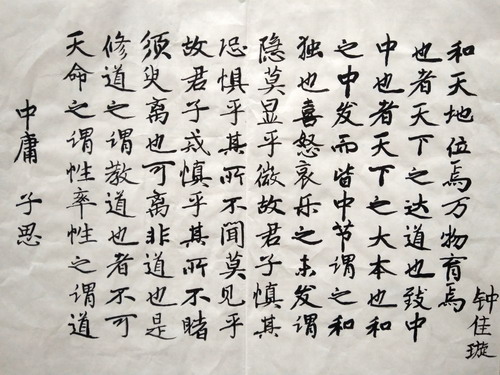 中庸 子思
天命之谓性率性之谓道
修道之谓教道也者不可
须臾离也可离非道也是
故君子戒慎乎其所不睹
恐惧乎其所不闻莫见乎
隐莫显乎微故君子慎其
独也喜怒哀乐之未发谓
之中发而皆中节谓之和
中也者天下之大本也和
也者天下之达道也致中
和天地位焉万物育焉
钟佳璇